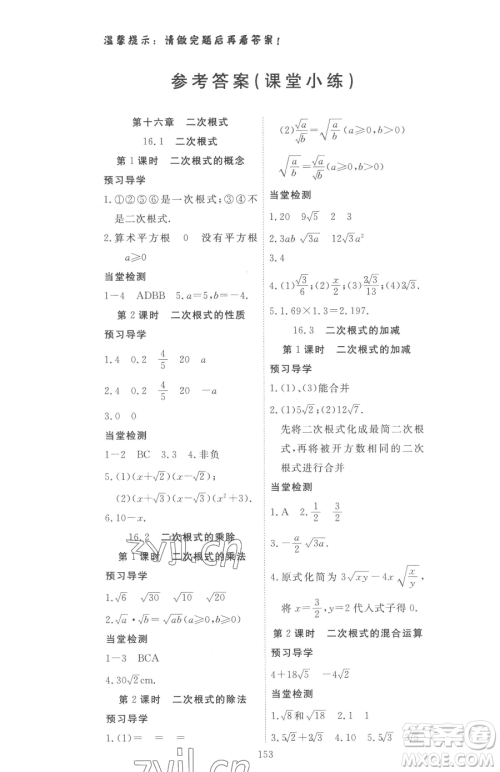 温馨提示：请做完题后再看答案！
参考答案(课堂小练)
第十六章　二次根式
16.1　二次根式
第1课时　二次根式的概念
预习导学
1.①②⑤⑥是二次根式；③④不
是二次根式.
2.算术平方根　0　没有平方根
a≥0
当堂检测
1—4　ADBB　5.a=5,b=-4.
第2课时　二次根式的性质
预习导学
1.4　0.2　4/5　20　a
2.4　0.2　4/5　20　-a
3.0　0
当堂检测
1—2　BC　3.3　4.非负
5.(1)(x+√2)(x-√2);
(2)(x+√3)(x-√3)(x²+3).
6.10-x.
16.2　二次根式的乘除
第1课时　二次根式的乘法
预习导学
1.√6　√30　√10　√20
2.√a·√b=√ab(a≥0,b≥0)
当堂检测
1—3　BCA
4.30√2 cm.
第2课时　二次根式的除法
预习导学
1.(1)=　=　=　=
(2)√a/√b=√(a/b)(a≥0,b>0)
√(a/b)=√a/√b(a≥0,b>0)
当堂检测
1.20　9√5　2　3
2.3ab　√3a　12√3a²
3.4
5.1.69×1.3=2.197.
16.3　二次根式的加减
第1课时　二次根式的加减
预习导学
1.(1)、(3)能合并
2.(1)5√2;　(2)12√7.
先将二次根式化成最简二次根
式,再将被开方数相同的二次
根式进行合并
当堂检测
1.A　2.1/2　1/2
3.-a/2 √3a.
4.原式化简为3√xy-4x√(x/y)
将x=3/2,y=2代入式子得0.
第2课时　二次根式的混合运算
预习导学
4+18√5　-5　4
当堂检测
1.√8和√18　2.√3
153
zyjl.cn
zyjl.cn